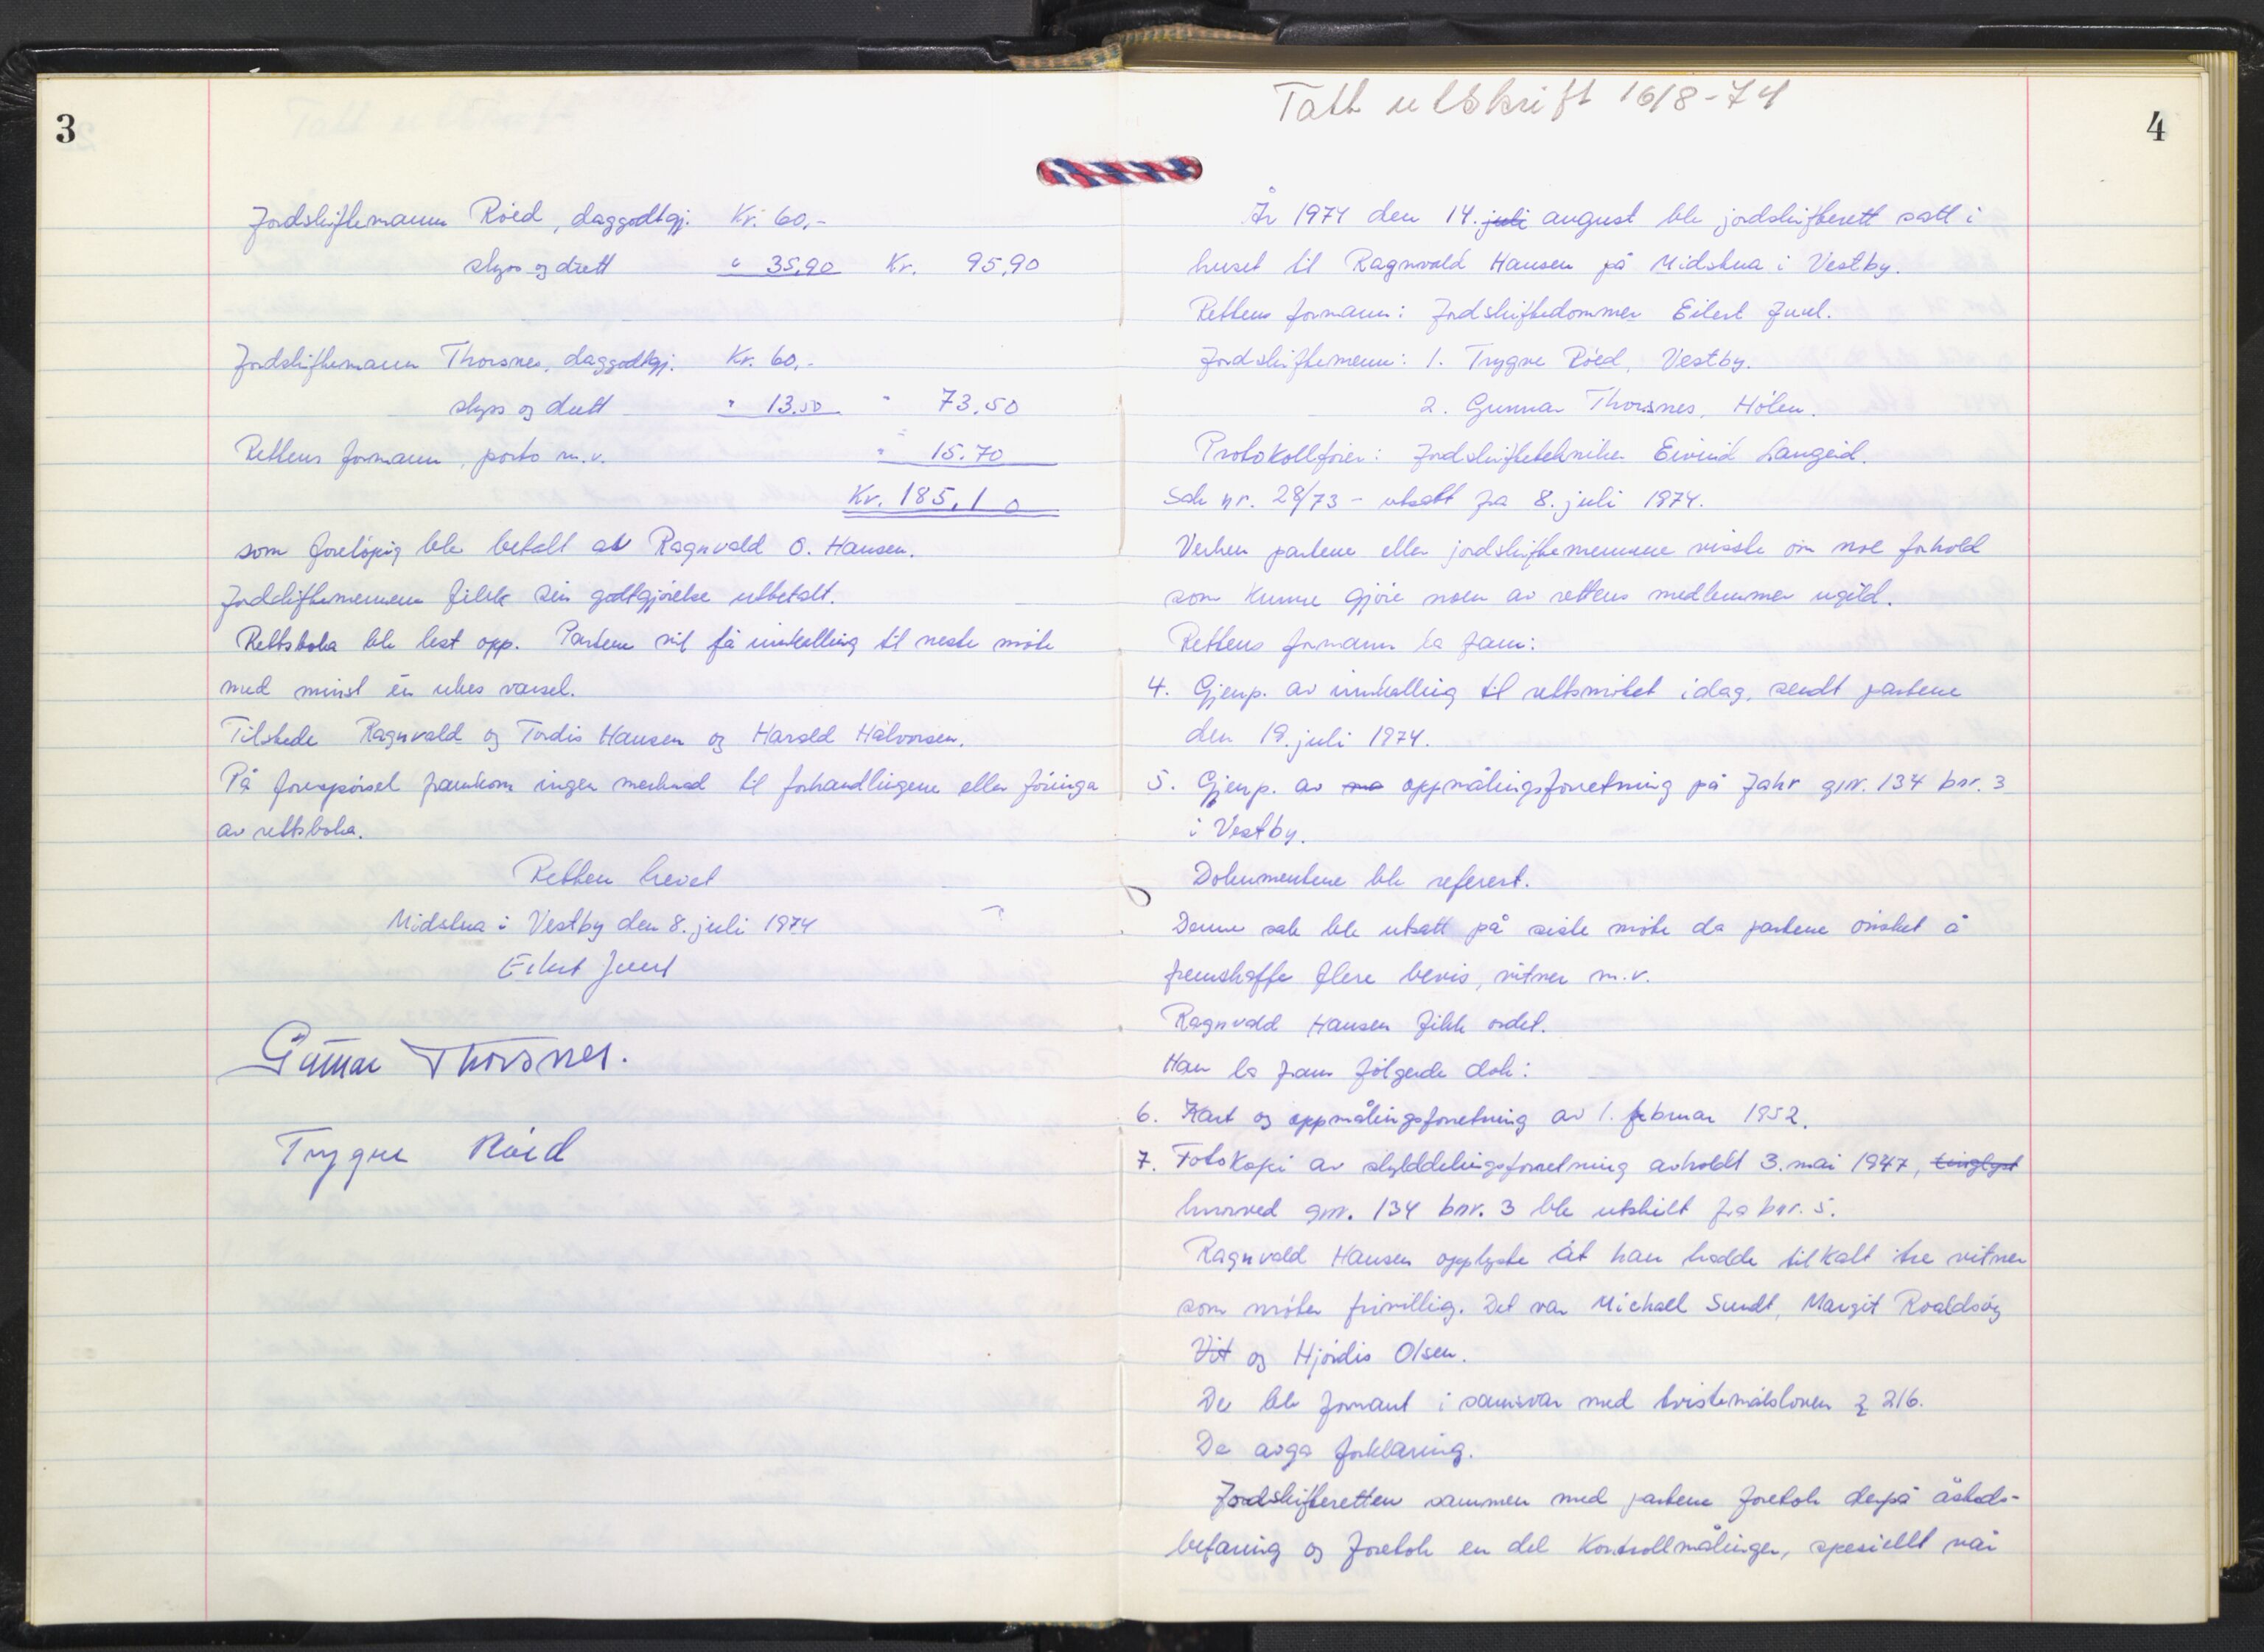 3
Jordskiftemann Röed, daggodtgj. Kr. 60,-
skyss og diett " 35,90 Kr. 95,90
Jordskiftemann Thorsnes, daggodtgj. Kr. 60,-
skyss og diett " 13.50 " 73,50
Rettens formann, porto m.v. " 15.70
Kr. 185,10
som foreløpig ble betalt av Ragnvald O. Hansen.
Jordskiftemennene fikk sin godtgjørelse utbetalt.
Rettsboka ble lest opp. Partene vil få innkalling til neste møte
med minst én ukes varsel.
Tilstede Ragnvald og Tordis Hansen og Harald Halvorsen.
På forespørsel framkom ingen merknad til forhandlingene eller föringa
av rettsboka.
Retten hevet
Midskua i Vestby den 8. juli 1974
Eilert Juul
Gunnar Thorsnes.
Trygve Röed
Tatt utskrift 16/8-74
4
År 1974 den 14. juli august ble jordskifterett satt i
huset til Ragnvald Hansen på Midskua i Vestby.
Rettens formann: Jordskiftedommer Eilert Juul.
Jordskiftemenn: 1. Trygve Röed, Vestby.
2. Gunnar Thorsnes, Hölen.
Protokollfører: Jordskiftetekniker Eivind Langeid.
Sak nr. 28/73 - utsatt fra 8. juli 1974.
Verken partene eller jordskiftemennene visste om noe forhold
som kunne gjöre noen av rettens medlemmer ugild.
Rettens formann la fram:
4. Gjenp. av innkalling til rettsmötet idag, sendt partene
den 19. juli 1974.
5. Gjenp. av oppmålingsforretning på Jahr gnr. 134 bnr. 3
i Vestby.
Dokumentene ble referert.
Denne sak ble utsatt på siste möte da partene önsket å
fremskaffe flere bevis, vitner m.v.
Ragnvald Hansen fikk ordet.
Han la fram fölgende dok:
6. Kart og oppmålingsforretning av 1. februar 1952.
7. Fotokopi av skylddelingsforretning avholdt 3. mai 1947, tinglyst
hvorved gnr. 134 bnr. 3 ble utskilt fra bnr. 5.
Ragnvald Hansen opplyste at han hadde tilkalt tre vitner
som möter frivillig. Det var Michael Sundt, Margit Roaldsöy
Vit og Hjördis Olsen.
De ble formant i samsvar med tvistemålsloven § 216.
De avga forklaring.
Jordskifteretten sammen med partene foretok derpå åsteds-
befaring og foretok en del kontrollmålinger, spesielt når